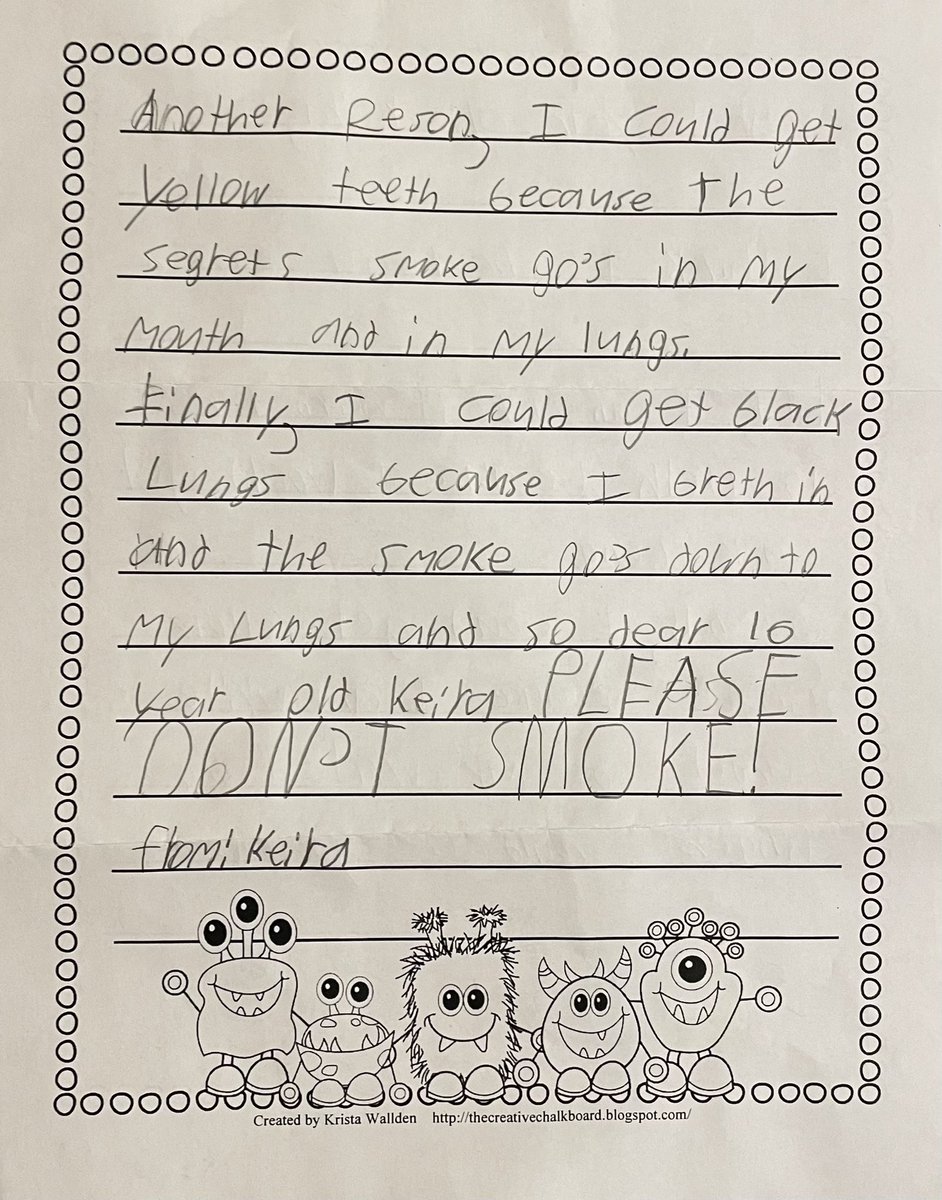 Another Reson, I could get
yellow teeth because the
segrets smoke go's in my
mouth and in my lungs.
Finally, I could get black
Lungs because I breth in
and the smoke go's down to
my Lungs and so dear 16
year old Keira PLEASE
DON'T SMOKE!
from: Keira
Created by Krista Wallden http://thecreativechalkboard.blogspot.com/